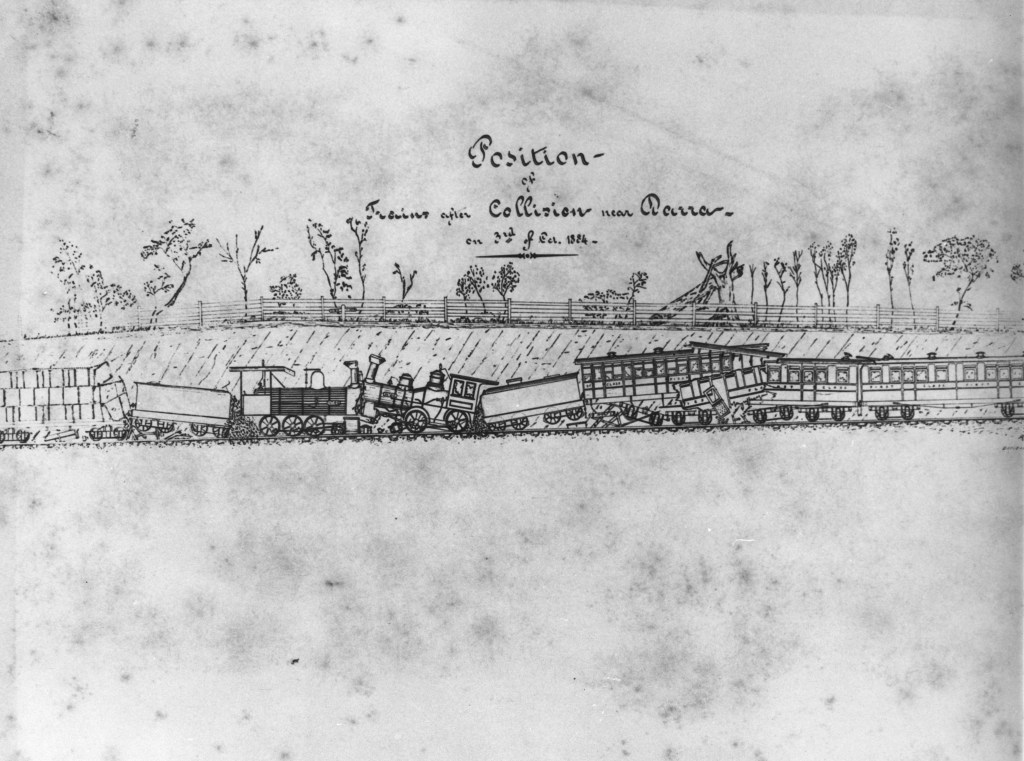 Position-
of
Trains after Collision near Darra-
on 3rd of Oct. 1884-
CLASS
CLASS